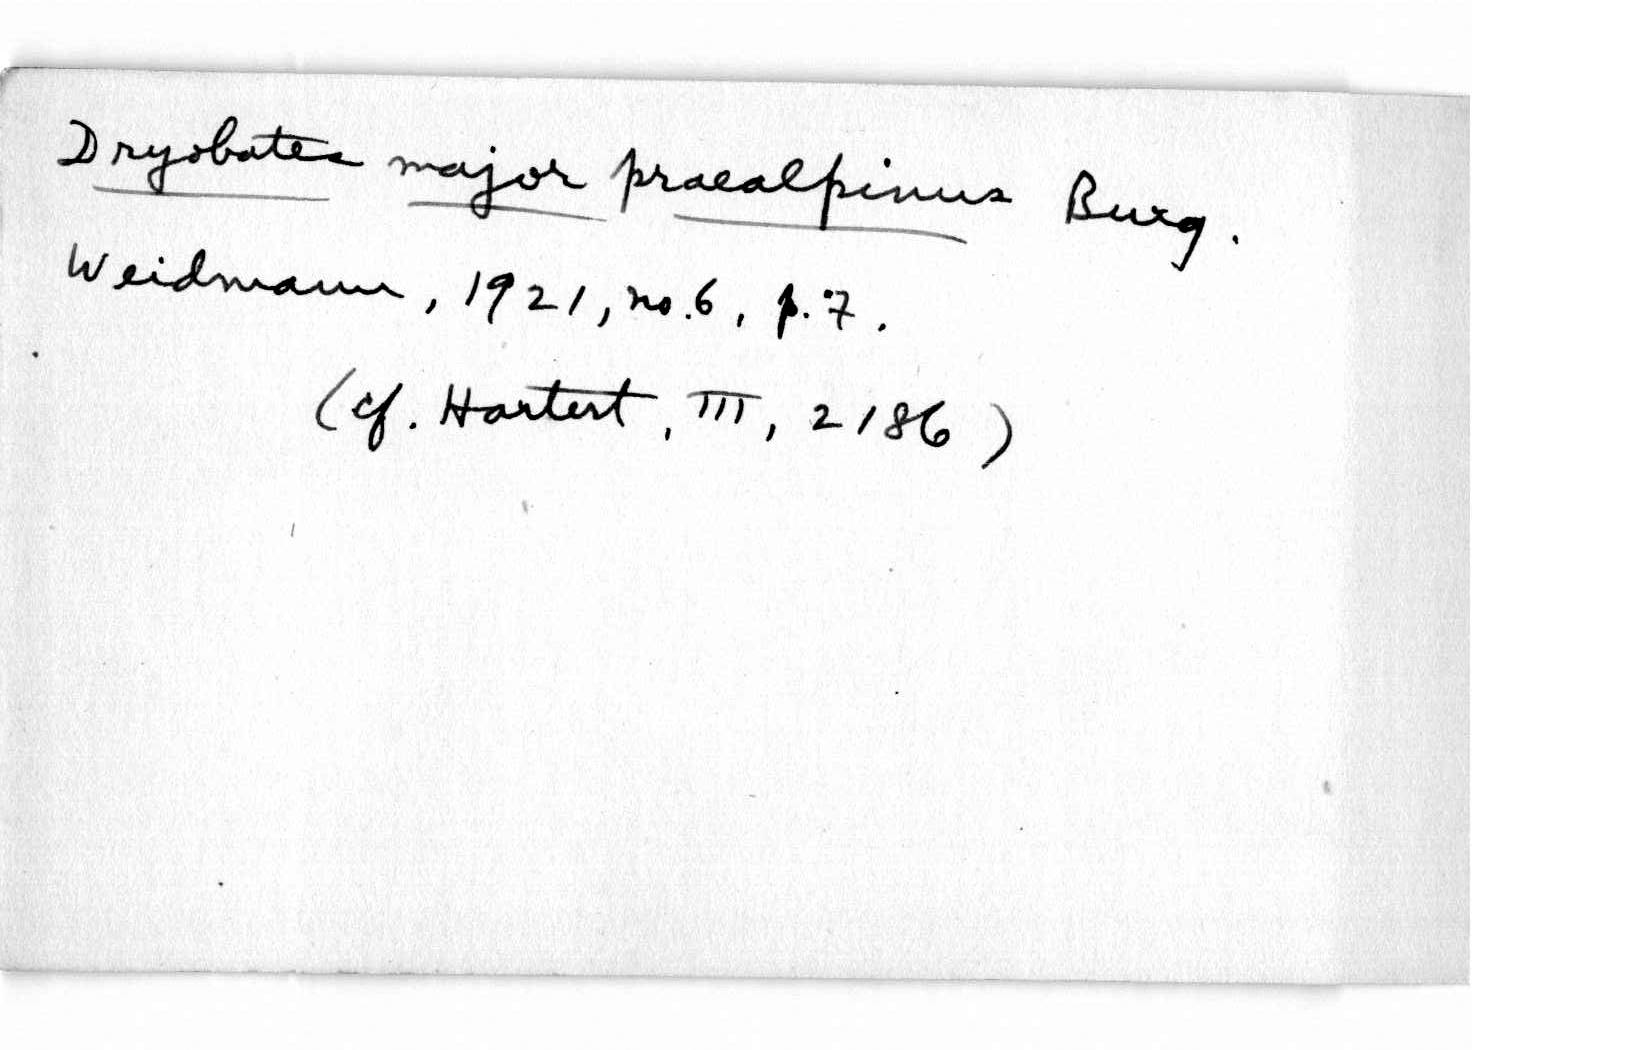 Dryobates major praealpinus Burg.
Weidmann, 1921, no. 6, p. 7.
(cf. Hartert, III, 2186)